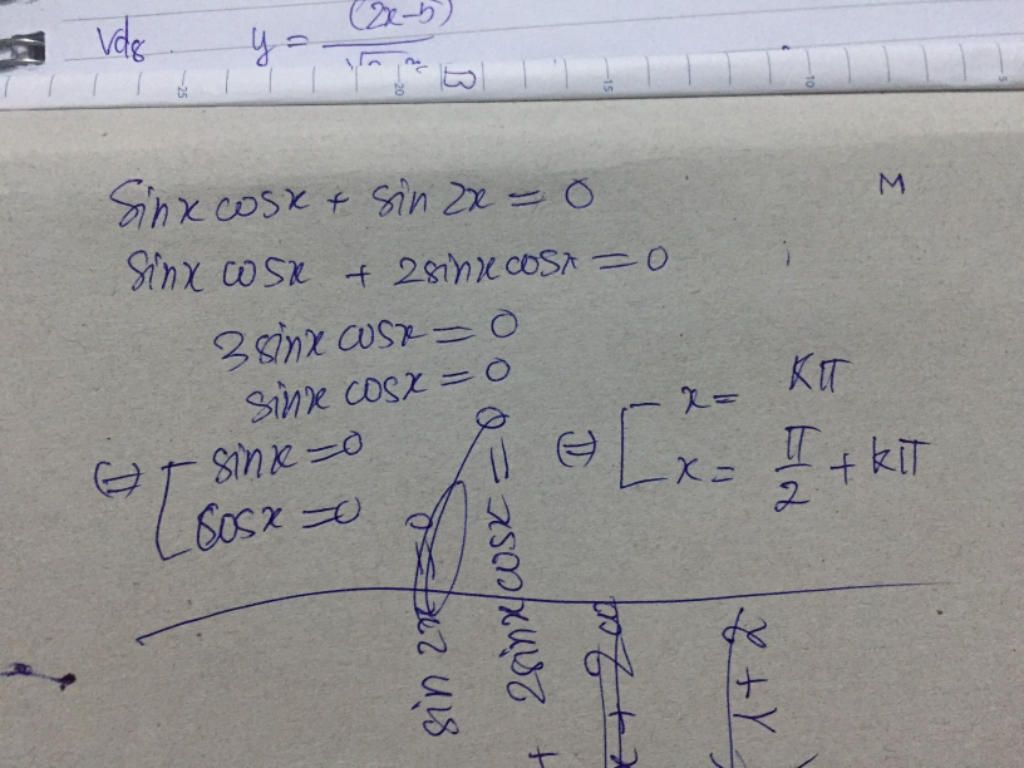 Vd8 y = (2x-5)
-25 -20 -15 -10 -5
B
sinx cosx + sin 2x = 0
M
sinx cosx + 2sinx cosx = 0
3 sinx cosx = 0
sinx cosx = 0
⇔ [ sinx = 0
cosx = 0
⇔ [ x = kπ
x = π/2 + kπ
sin 2x = 0
2sinx cosx = 0
1 + 2